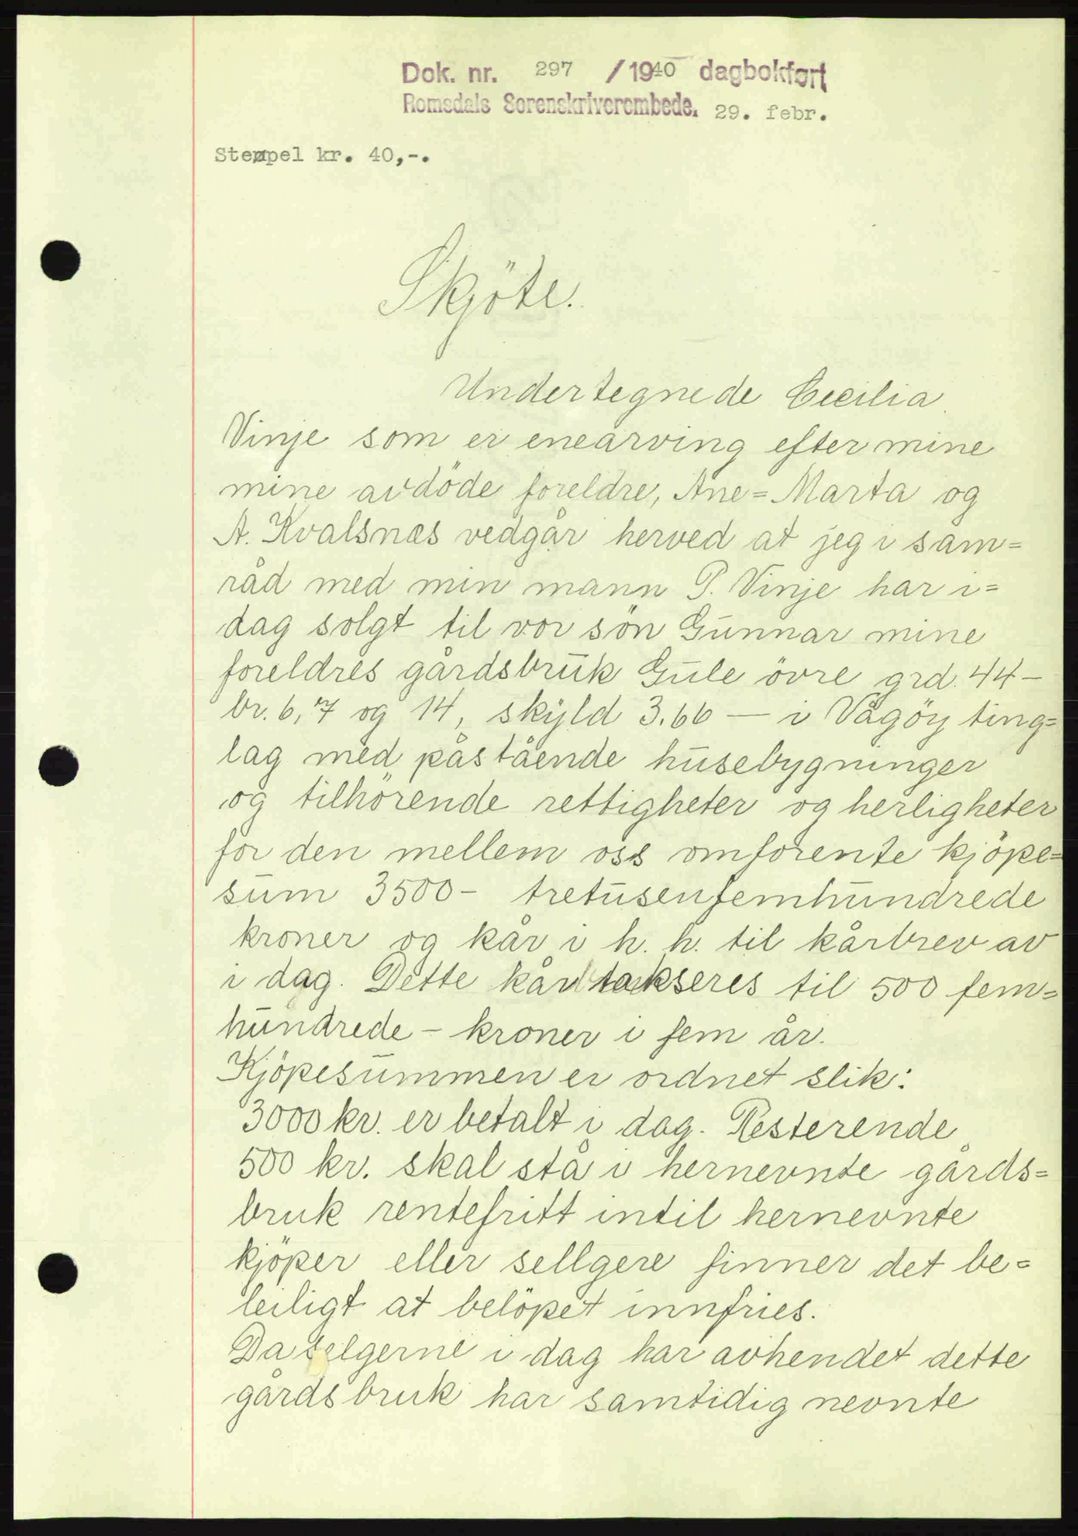 Dok. nr. 297 / 1940 dagbokført
Romsdals Sorenskriverembede. 29. febr.
Stempel kr. 40,-.
Skjöte.
Undertegnede Cecilia
Vinje som er enearving efter mine
mine avdöde foreldre, Ane=Marta og
A. Kvalsnæs vedgår herved at jeg i sam=
råd med min mann P. Vinje har i=
dag solgt til vor sön Gunnar mine
foreldres gårdsbruk Gule övre grd. 44-
br. 6, 7 og 14, skyld 3.66 — i Vågöy ting=
lag med påstående husebygninger
og tilhörende rettigheter og herligheter
for den mellem oss omforente kjöpe=
sum 3500- tretusenfemhundrede
kroner og kår i h. h. til kårbrev av
i dag. Dette kår takseres til 500 fem=
hundrede - kroner i fem år.
Kjöpesummen er ordnet slik:
3000 kr. er betalt i dag. Resterende
500 kr. skal stå i hernevnte gårds=
bruk rentefritt intil hernevnte
kjöper eller sellgere finner det be=
leiligt at belöpet innfries.
Da selgerne i dag har avhendet dette
gårdsbruk har samtidig nevnte